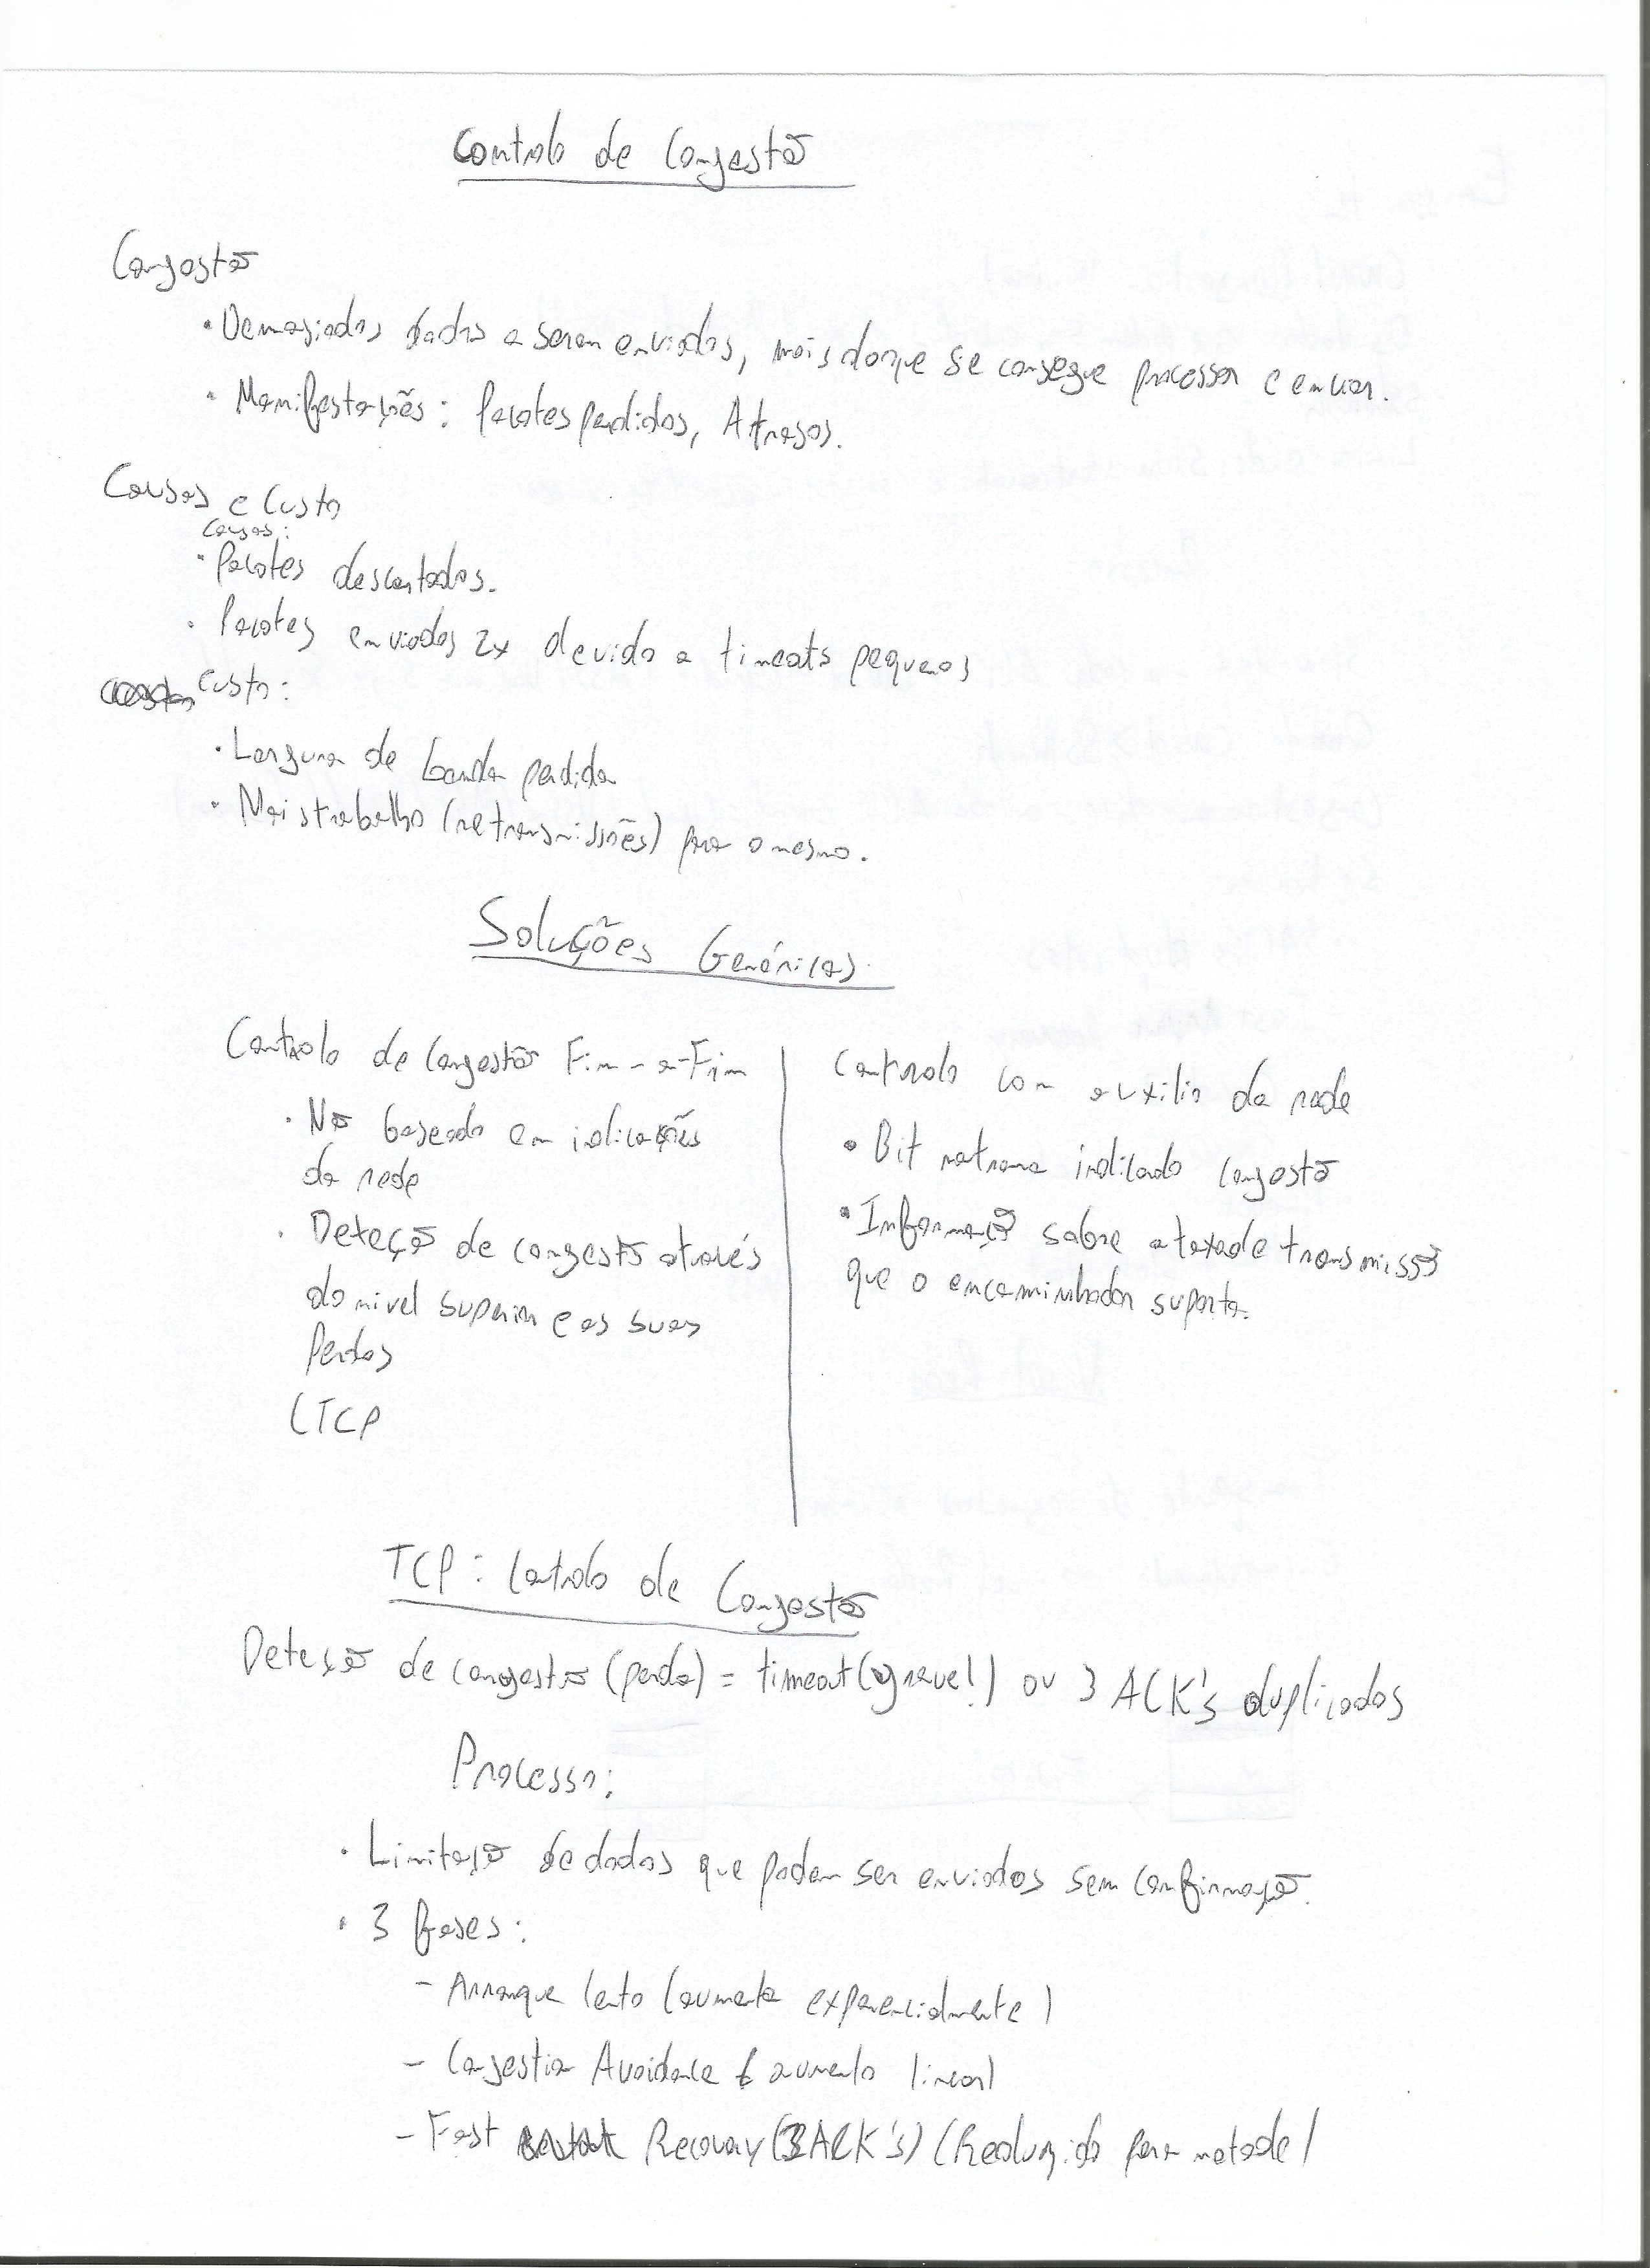 Controlo de Congestão
Congestão
• Demasiados dados a serem enviados, mais do que se consegue processar e enviar.
• Manifestações: Pacotes perdidos, Atrasos.
Causas e Custo
Causas:
• Pacotes descartados.
• Pacotes enviados 2x devido a timeouts pequenos
Custo:
• Largura de banda perdida
• Mais trabalho (retransmissões) para o mesmo.
Soluções Genéricas
Controlo de Congestão Fim-a-Fim
• Não baseado em indicações
da rede
• Deteção de congestão através
do nivel superior e as suas
Perdas
(TCP
Controlo com auxilio da rede
• Bit na trama indicado congestão
• Informação sobre a taxa de transmissão
que o encaminhador suporta.
TCP: Controlo de Congestão
Deteção de congestão (perda) = timeout (grave!) ou 3 ACK's duplicados
Processo:
• Limitação de dados que podem ser enviados sem confirmação.
• 3 fases:
- Arranque lento (aumenta exponencialmente)
- Congestion Avoidance (aumento linear)
- Fast Recovery (3ACK's) (Reduzido para metade)